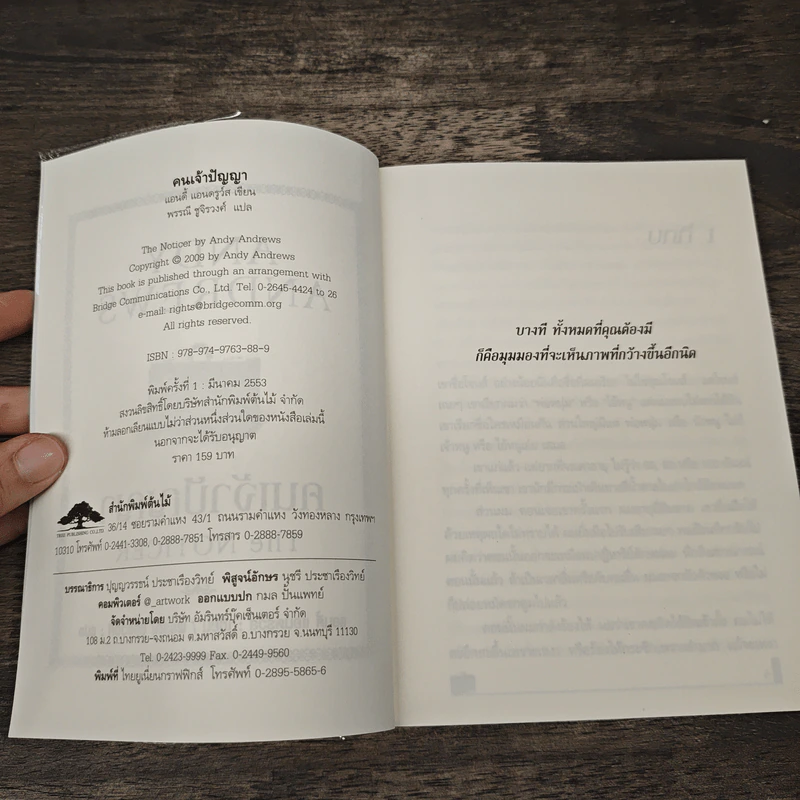 คนเจ้าปัญญา
แอนดี้ แอนดรูว์ส เขียน
พรรณี ชูจิรวงศ์ แปล
The Noticer by Andy Andrews
Copyright © 2009 by Andy Andrews
This book is published through an arrangement with
Bridge Communications Co., Ltd. Tel. 0-2645-4424 to 26
e-mail: rights@bridgecomm.org
All rights reserved.
ISBN : 978-974-9763-88-9
พิมพ์ครั้งที่ 1 : มีนาคม 2553
สงวนลิขสิทธิ์โดยบริษัทสำนักพิมพ์ต้นไม้ จำกัด
ห้ามลอกเลียนแบบไม่ว่าส่วนหนึ่งส่วนใดของหนังสือเล่มนี้
นอกจากจะได้รับอนุญาต
ราคา 159 บาท
สำนักพิมพ์ต้นไม้
TREE PUBLISHING CO.,LTD.
36/14 ซอยรามคำแหง 43/1 ถนนรามคำแหง วังทองหลาง กรุงเทพฯ
10310 โทรศัพท์ 0-2441-3308, 0-2888-7851 โทรสาร 0-2888-7859
บรรณาธิการ ปุญญวรรธน์ ประชาเรืองวิทย์ พิสูจน์อักษร นุชรี ประชาเรืองวิทย์
คอมพิวเตอร์ @_artwork ออกแบบปก กมล ปั้นแพทย์
จัดจำหน่ายโดย บริษัท อัมรินทร์บุ๊คเซ็นเตอร์ จำกัด
108 ม.2 ถ.บางกรวย-จงถนอม ต.มหาสวัสดิ์ อ.บางกรวย จ.นนทบุรี 11130
Tel. 0-2423-9999 Fax. 0-2449-9560
พิมพ์ที่ ไทยยูเนี่ยนกราฟฟิกส์ โทรศัพท์ 0-2895-5865-6
บางที ทั้งหมดที่คุณต้องมี
ก็คือมุมมองที่จะเห็นภาพที่กว้างขึ้นอีกนิด